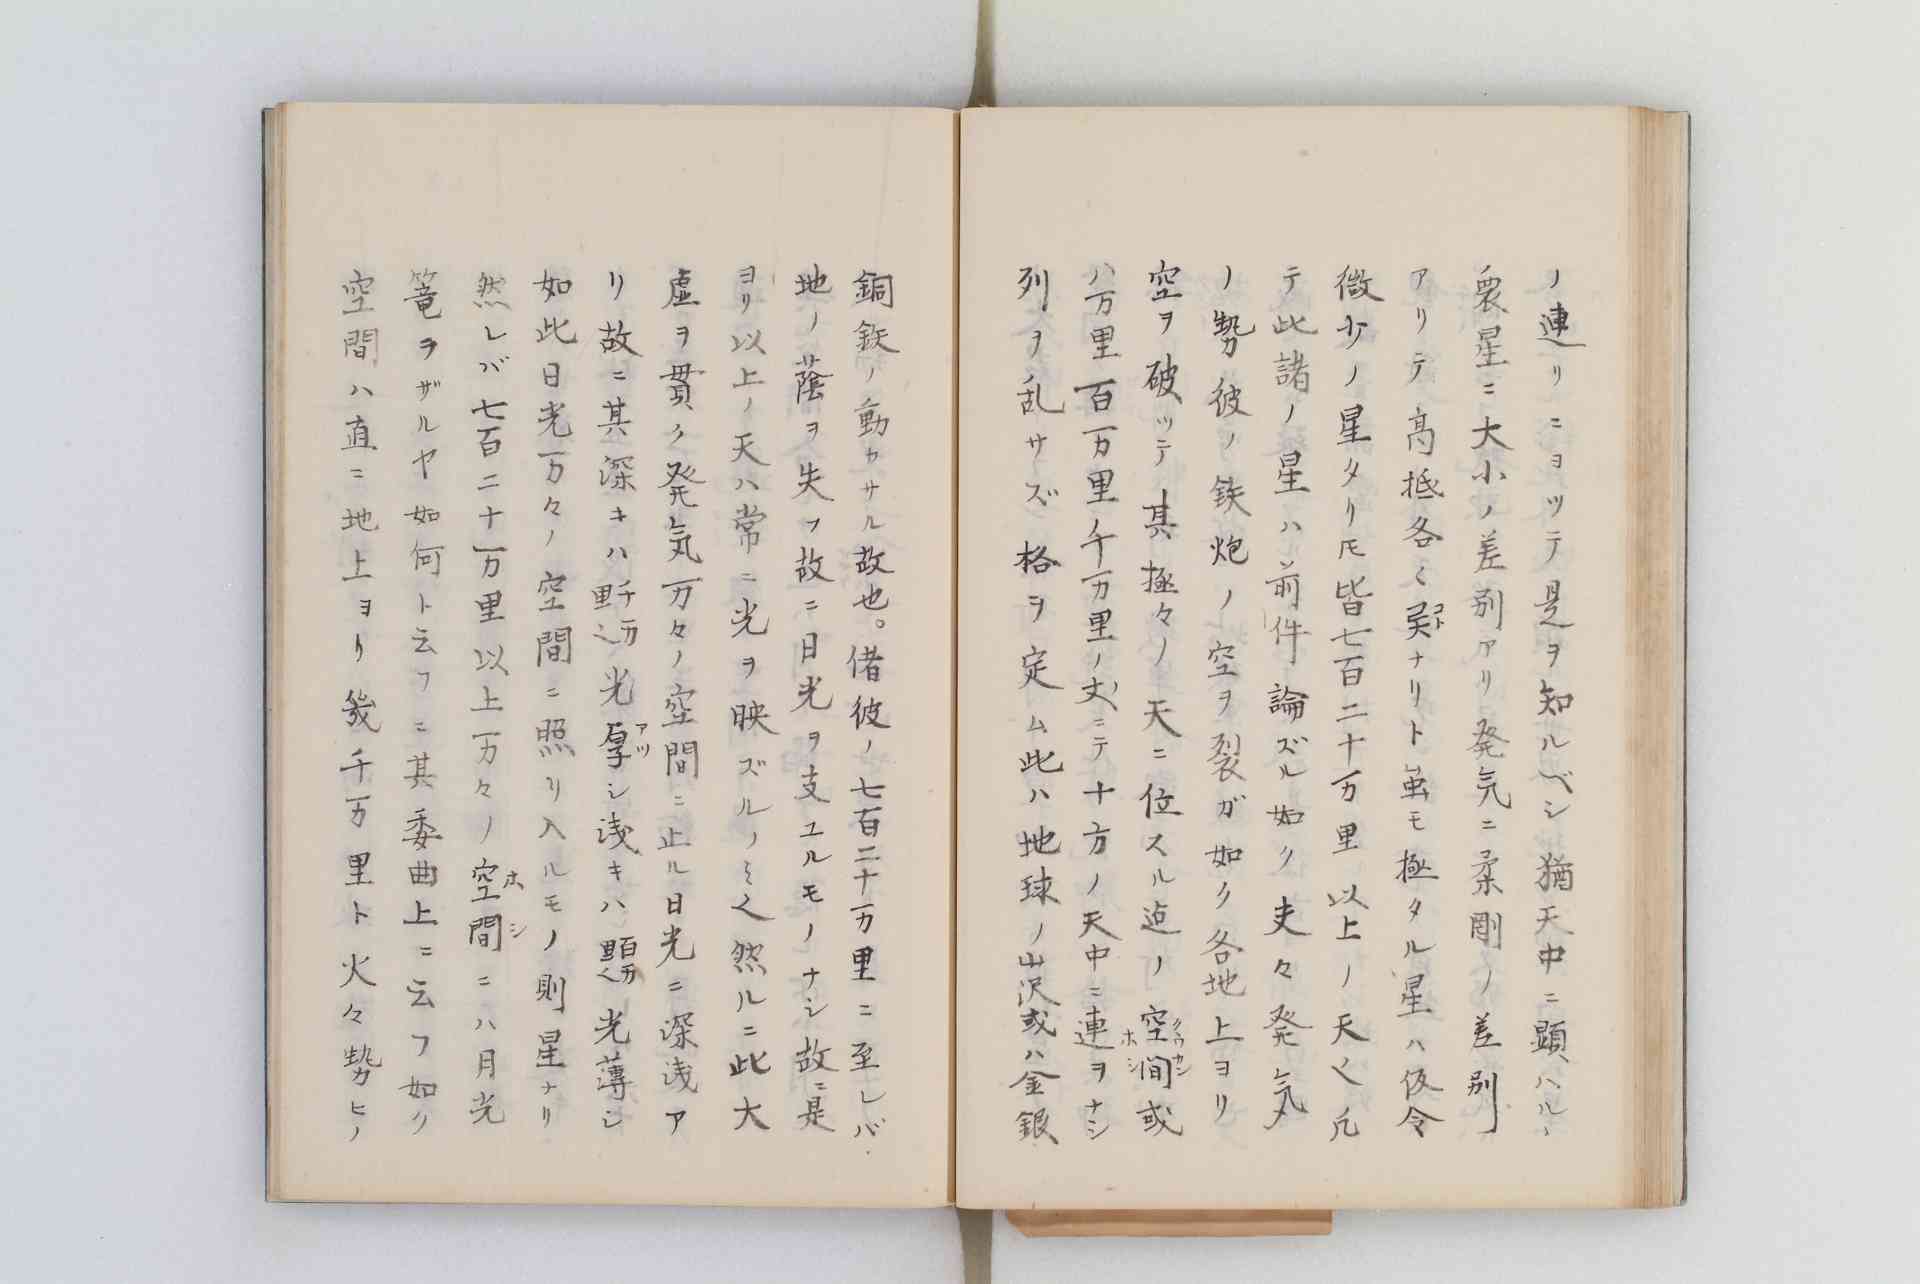 ノ連リニヨツテ是ヲ知ルベシ猶天中ニ顕ハルヽ
衆星ニ大小ノ差別アリ発気ニ柔剛ノ差別
アリテ高抵各々異ナリト虽モ極タル星ハ仮令
微少ノ星タリ𪜈皆七百二十万里以上ノ天也凡
テ此諸ノ星ハ前件論ズル如ク夫々発気
ノ勢彼ノ鉄炮ノ空ヲ裂ガ如ク各地上ヨリ
空ヲ破ツテ其極々ノ天ニ位スル迠ノ空間或
ハ万里百万里千万里ノ丈ニテ十方ノ天中ニ連ヲナシ
列ヲ乱サズ格ヲ定ム此ハ地球ノ山沢或ハ金銀
銅鉄ノ動カサル故也。偖彼ノ七百二十万里ニ至レバ
地ノ蔭ヲ失フ故ニ日光ヲ支ユルモノナシ故ニ是
ヨリ以上ノ天ハ常ニ光ヲ映ズルノミ也然ルニ此大
虚ヲ貫ク発気万々ノ空間ニ止ル日光ニ深浅ア
リ故ニ其深キハ千万里也光厚シ浅キハ百万里也光薄シ
如此日光万々ノ空間ニ照リ入ルモノ則星ナリ
然レバ七百二十万里以上万々ノ空間ニハ月光
篭ヲザルヤ如何ト云フニ其委曲上ニ云フ如ク
空間ハ直ニ地上ヨリ幾千万里ト火々勢ヒノ